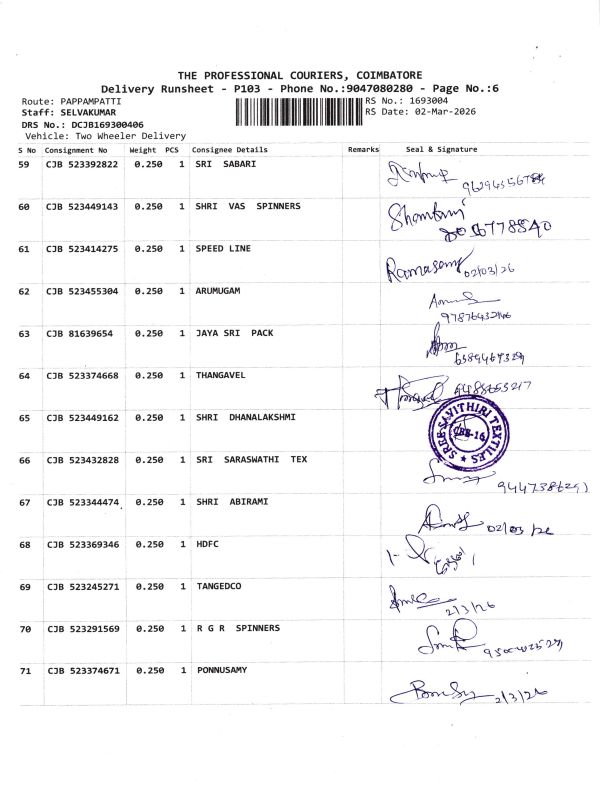 THE PROFESSIONAL COURIERS, COIMBATORE
Delivery Runsheet - P103 - Phone No.:9047080280 - Page No.:6
Route: PAPPAMPATTI RS No.: 1693004
Staff: SELVAKUMAR RS Date: 02-Mar-2026
DRS No.: DCJB169300406
Vehicle: Two Wheeler Delivery
S No Consignment No Weight PCS Consignee Details Remarks Seal & Signature
59 CJB 523392822 0.250 1 SRI SABARI
60 CJB 523449143 0.250 1 SHRI VAS SPINNERS
61 CJB 523414275 0.250 1 SPEED LINE Ramasamy 02/03/26
62 CJB 523455304 0.250 1 ARUMUGAM
63 CJB 81639654 0.250 1 JAYA SRI PACK
64 CJB 523374668 0.250 1 THANGAVEL
65 CJB 523449162 0.250 1 SHRI DHANALAKSHMI
SREE SAVITHIRI TEXTILES
CBE-16
66 CJB 523432828 0.250 1 SRI SARASWATHI TEX
67 CJB 523344474 0.250 1 SHRI ABIRAMI
68 CJB 523369346 0.250 1 HDFC
69 CJB 523245271 0.250 1 TANGEDCO 2/3/26
70 CJB 523291569 0.250 1 R G R SPINNERS
71 CJB 523374671 0.250 1 PONNUSAMY 2/3/26